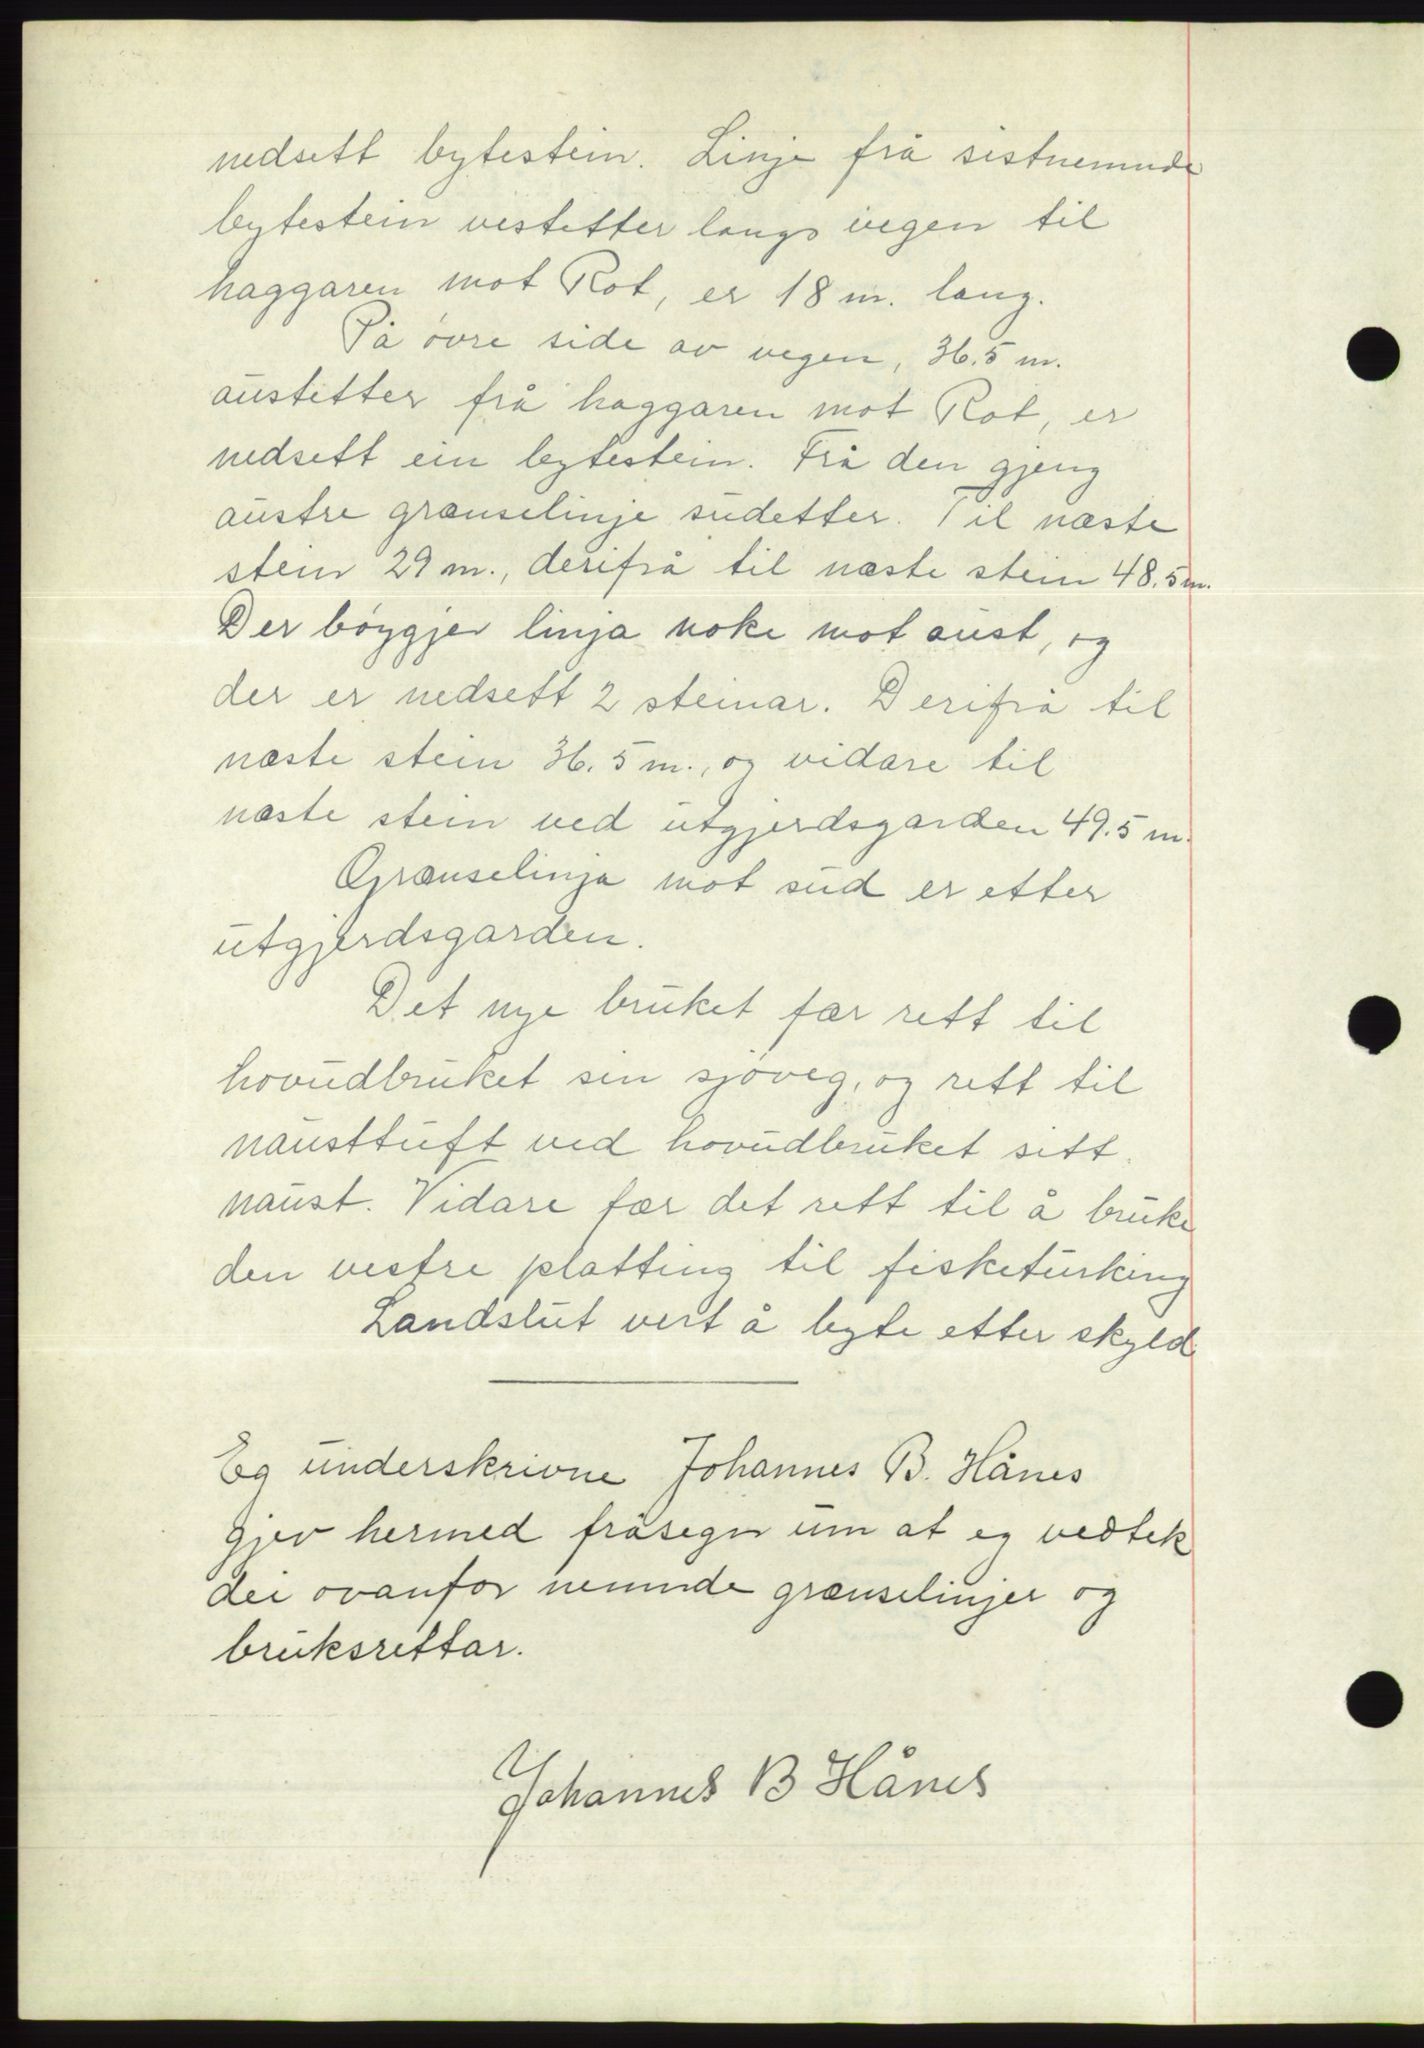 nedsett bytestein. Linje frå sistnemnde
bytestein vestetter langs vegen til
haggaren mot Rot, er 18 m. lang.
På øvre side av vegen, 36.5 m.
austetter frå haggaren mot Rot, er
nedsett ein bytestein. Frå den gjeng
austre grænselinje sudetter. Til næste
stein 29 m., derifrå til næste stein 48.5 m.
Der bøygjer linja noke mot aust, og
der er nedsett 2 steinar. Derifrå til
næste stein 36.5 m., og vidare til
næste stein ved utgjerdsgarden 49.5 m.
Grænselinja mot sud er etter
utgjerdsgarden.
Det nye bruket fær rett til
hovudbruket sin sjøveg, og rett til
nausttuft ved hovudbruket sitt
naust. Vidare fær det rett til å bruke
den vestre platting til fisketurking
Landslut vert å byte etter skyld
Eg underskrivne Johannes B. Hånes
gjev hermed fråsegn um at eg vedtek
dei ovanfor nemnde grænselinjer og
bruksrettar.
Johannes B Hånes